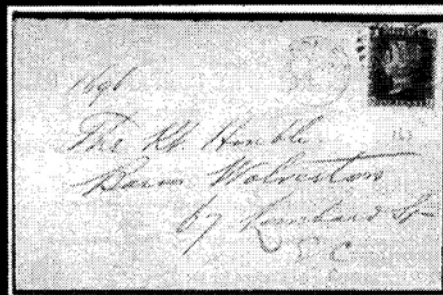 The Rt Honble
Baron Wolverton
67 Lombard St
E C